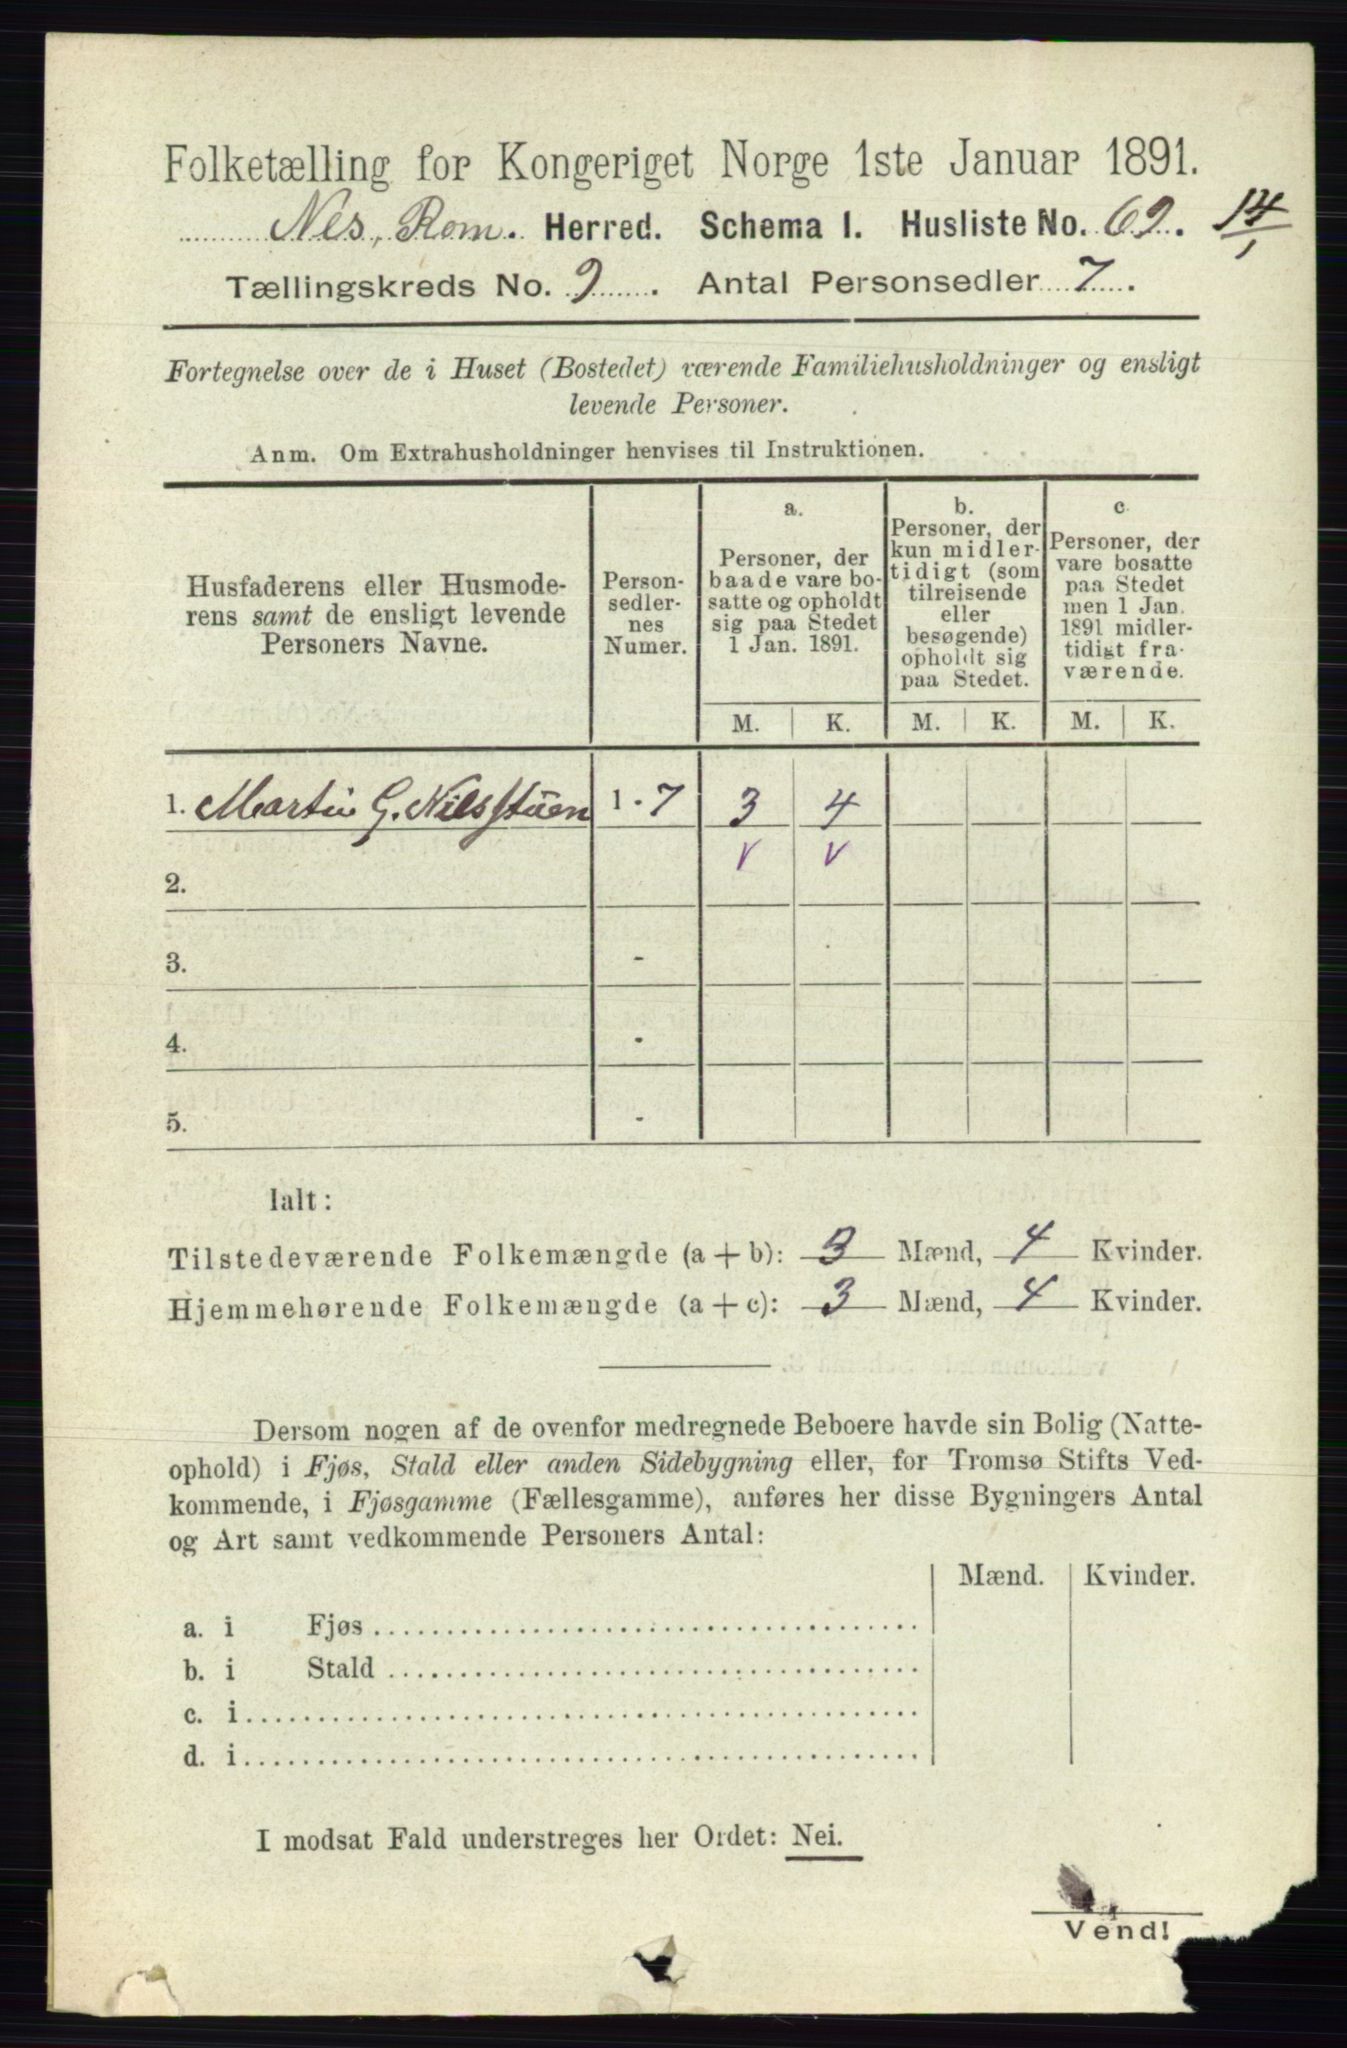 Folketælling for Kongeriget Norge 1ste Januar 1891.
Nes, Rom. Herred. Schema I. Husliste No. 69. 14/1
Tællingskreds No. 9. Antal Personsedler 7.
Fortegnelse over de i Huset (Bostedet) værende Familiehusholdninger og ensligt
levende Personer.
Anm. Om Extrahusholdninger henvises til Instruktionen.
Husfaderens eller Husmode-
rens samt de ensligt levende
Personers Navne.
Person-
sedler-
nes
Numer.
a.
Personer, der
baade vare bo-
satte og opholdt
sig paa Stedet
1 Jan. 1891.
b.
Personer, der
kun midler-
tidigt (som
tilreisende
eller
besøgende)
opholdt sig
paa Stedet.
c.
Personer, der
vare bosatte
paa Stedet
men 1 Jan.
1891 midler-
tidigt fra-
værende.
M. K. M. K. M. K.
1. Martin G. Nilsstuen 1 - 7 3 4
v v
2.
3. -
4. -
5. -
Ialt:
Tilstedeværende Folkemængde (a + b): 3 Mænd, 4 Kvinder.
Hjemmehørende Folkemængde (a + c): 3 Mænd, 4 Kvinder.
Dersom nogen af de ovenfor medregnede Beboere havde sin Bolig (Natte-
ophold) i Fjøs, Stald eller anden Sidebygning eller, for Tromsø Stifts Ved-
kommende, i Fjøsgamme (Fællesgamme), anføres her disse Bygningers Antal
og Art samt vedkommende Personers Antal:
Mænd. Kvinder.
a. i Fjøs
b. i Stald
c. i
d. i
I modsat Fald understreges her Ordet: Nei.
Vend!